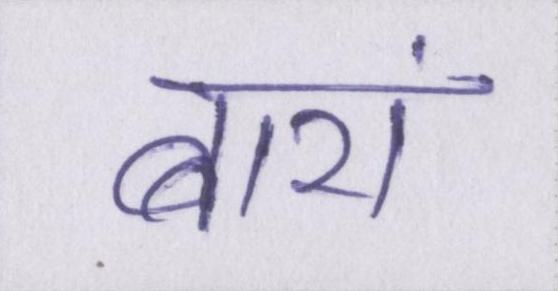 बारां